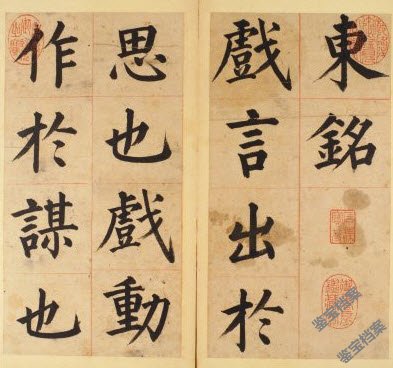 東銘
戲言出於
思也戲動
作於謀也
鉴宝档案
鉴宝档案